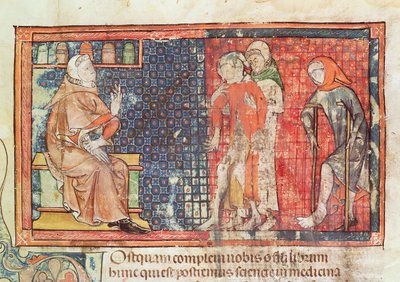 Ostquam complem nobis librum
hunc qui est postremus sciencie in medicina